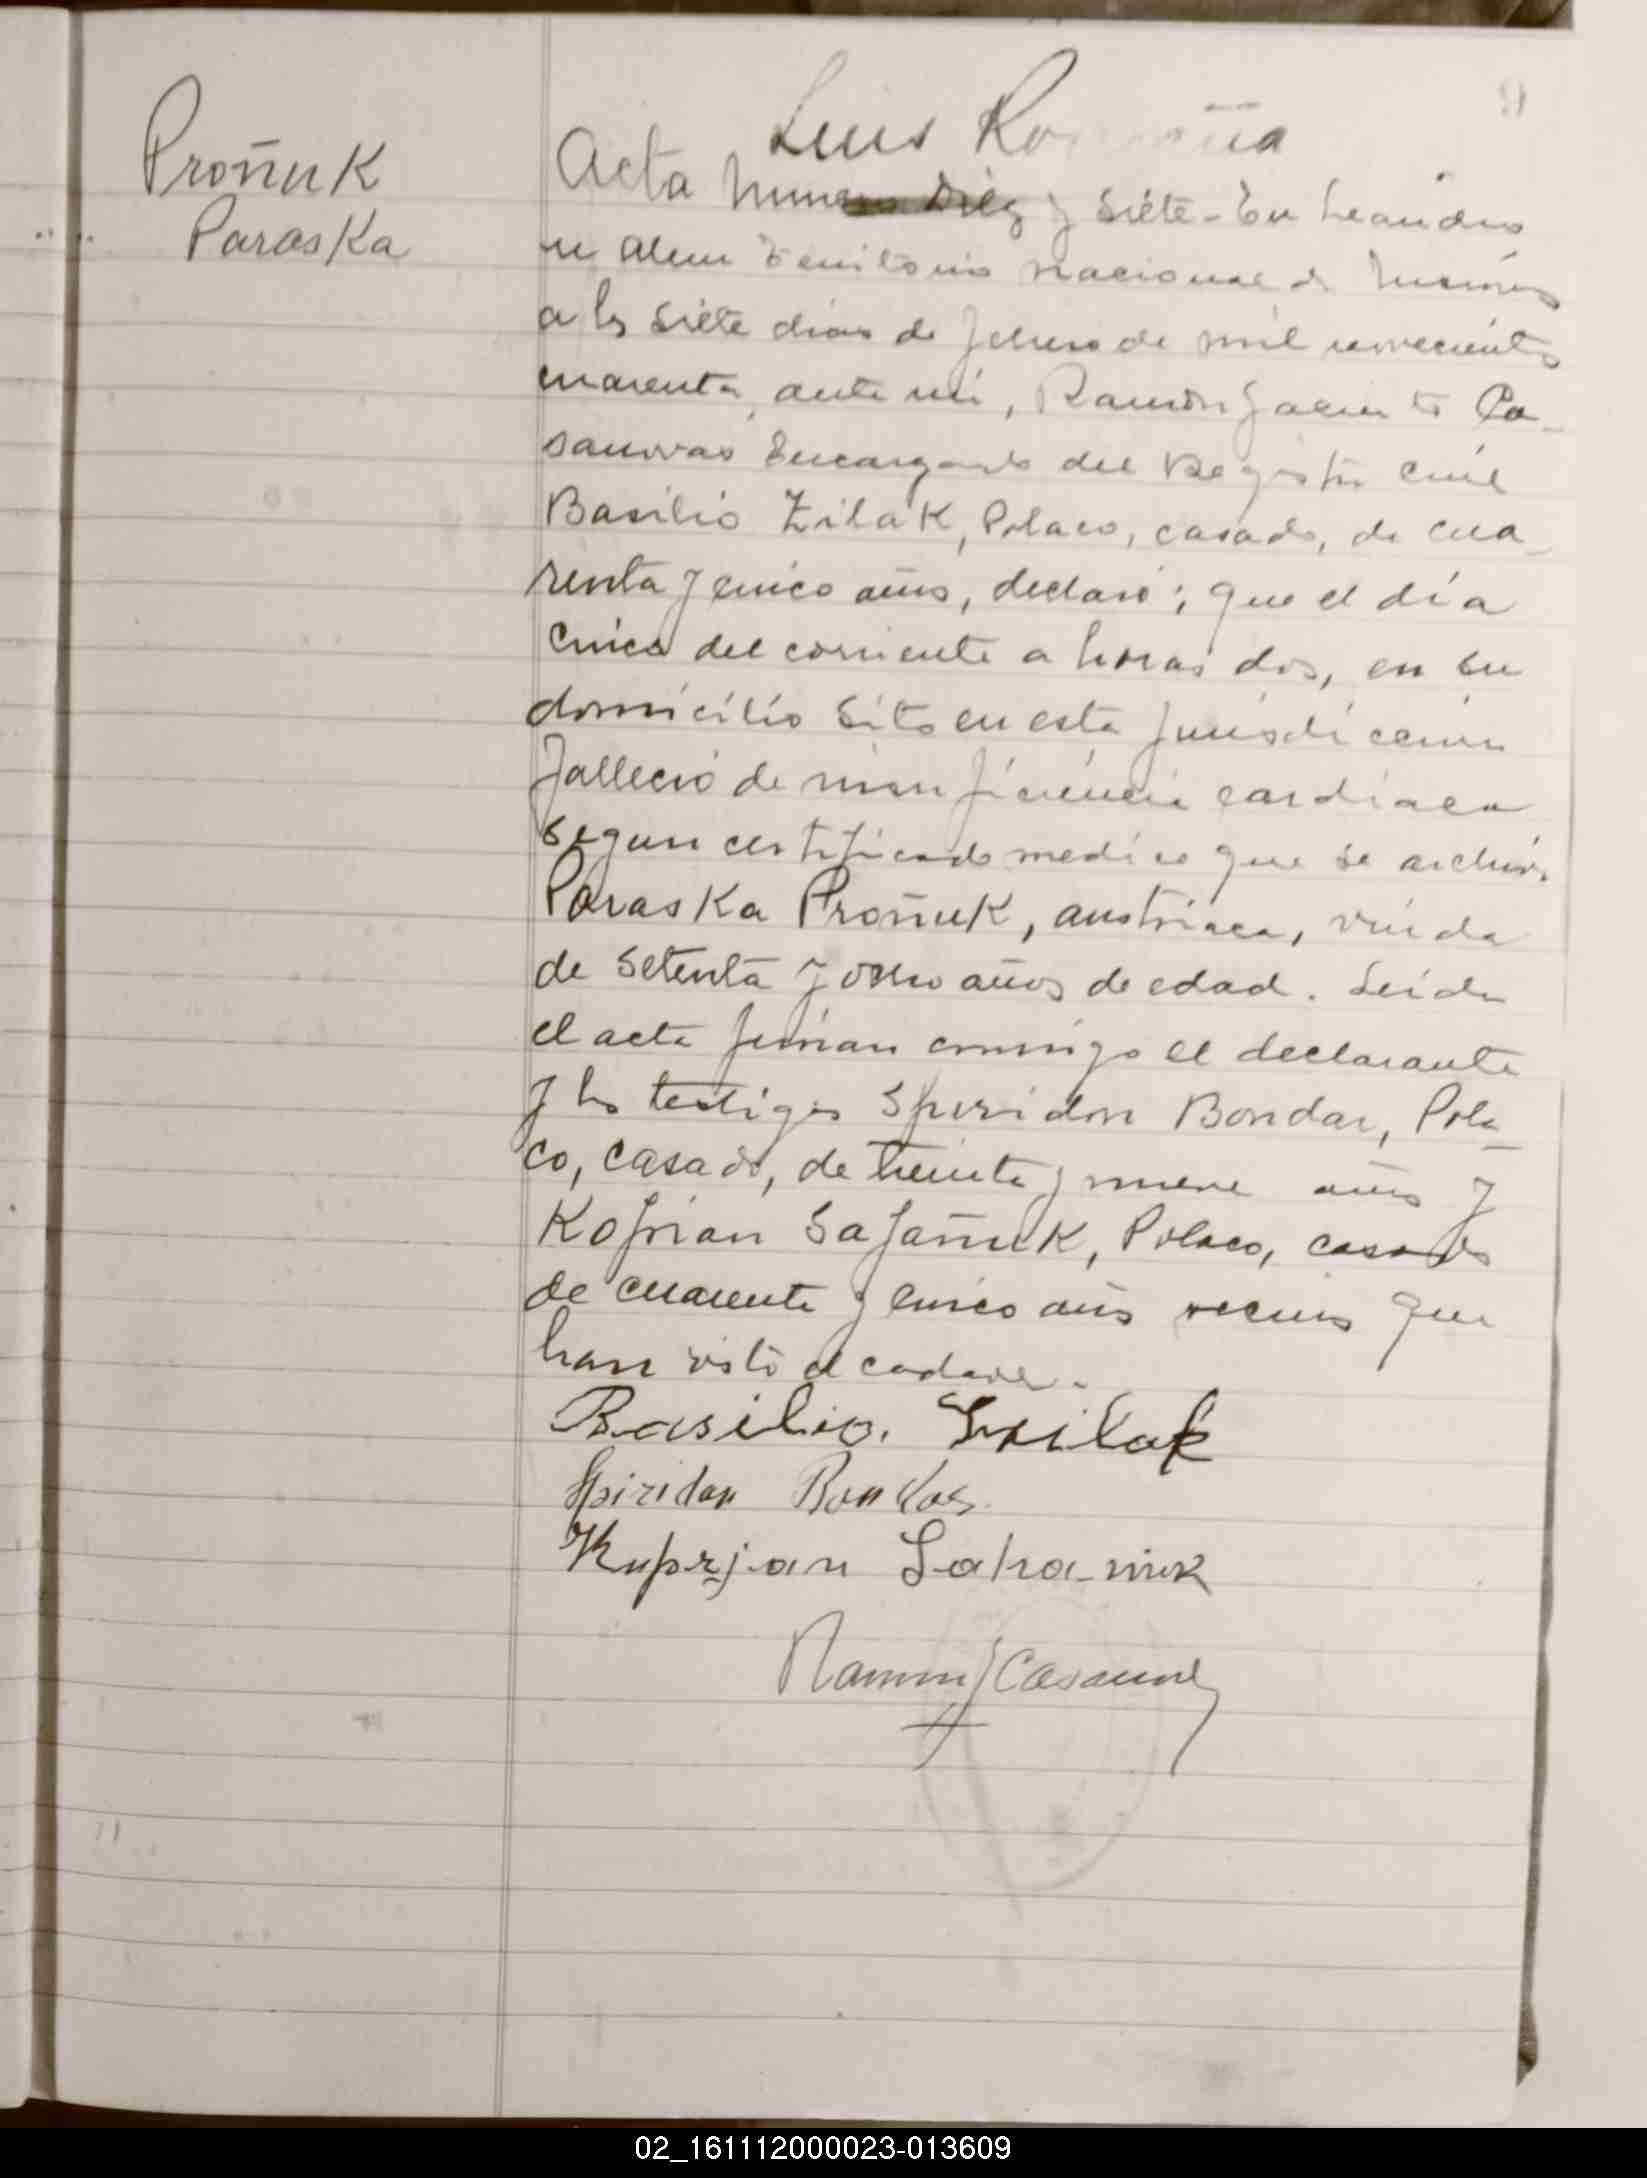 Proñuk
Paraska
Luis
Acta Numero Diez y Siete - En Leandro
n Alem Territorio Nacional de Misiones
a los siete dias de febrero de mil novecientos
cuarenta, ante mi, Ramón Jacinto Ca-
sanovas Encargado del Registro Civil
Basilio Zilak, Polaco, casado, de cua-
renta y cinco años, declaró; que el día
cinco del corriente a horas dos, en su
domicilio sito en esta jurisdiccion
falleció de insuficiencia cardiaca
segun certificado medico que se archiva.
Paraska Proñuk, austriaca, viuda
de setenta y ocho años de edad. Leida
el acta firman conmigo el declarante
y los testigos Spiridon Bondar, Pola-
co, casado, de treinta y nueve años y
Koprian Sajañuk, Polaco, casado
de cuarenta y cinco años vecinos que
han visto el cadaver.
Basilio
Spiridon
Kuprjan Saha-niuk
Ramon J Casanovas
02_161112000023-013609